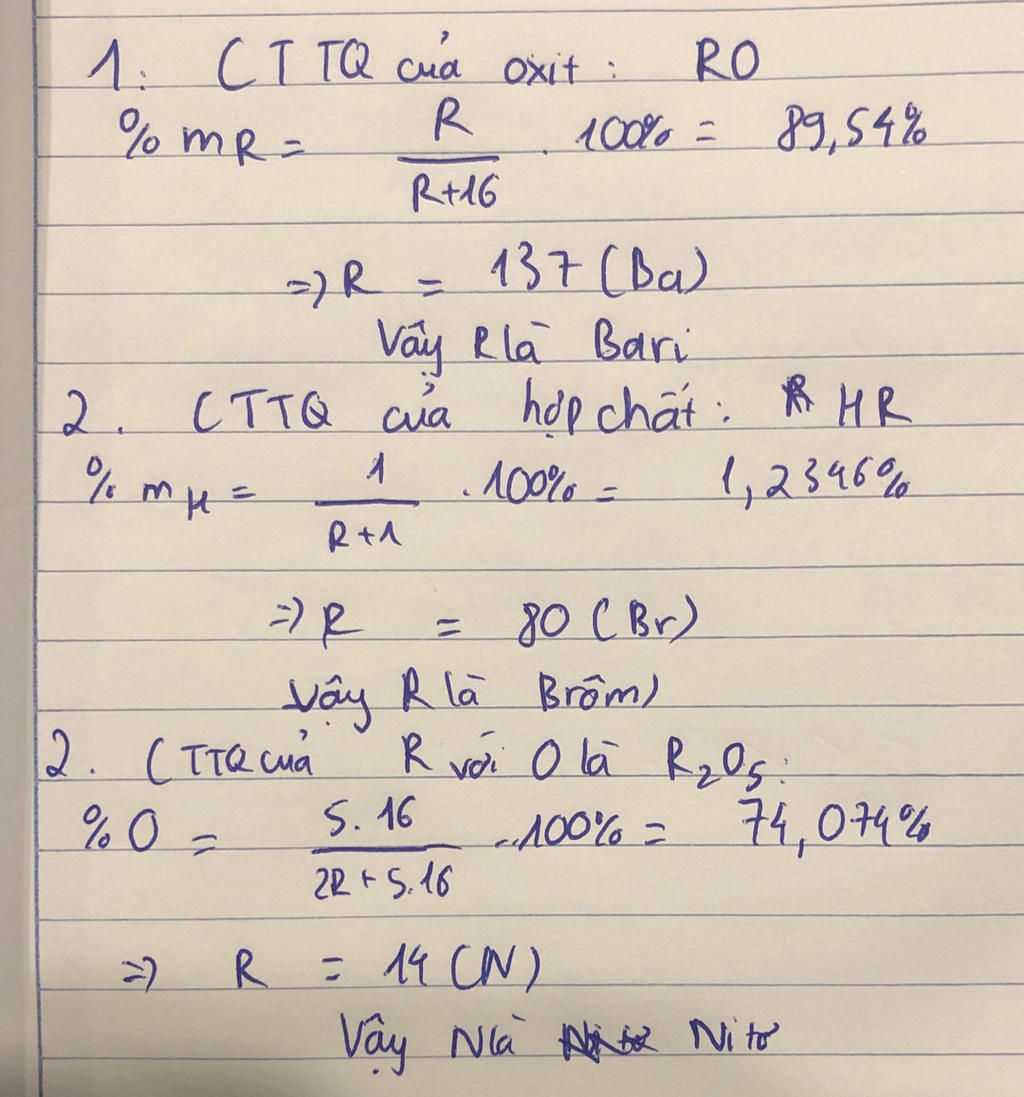 1. CTTQ của oxit: RO
% mR = R / R+16 . 100% = 89,54%
=) R = 137 (Ba)
Vậy R là Bari
2. CTTQ của hợp chất: HR
% mH = 1 / R+1 . 100% = 1,2346%
=) R = 80 (Br)
Vậy R là Brôm)
2. CTTQ cuả R với O là R2O5:
% O = 5.16 / 2R + 5.16 . 100% = 74,074%
=) R = 14 (N)
Vậy N là Nitơ